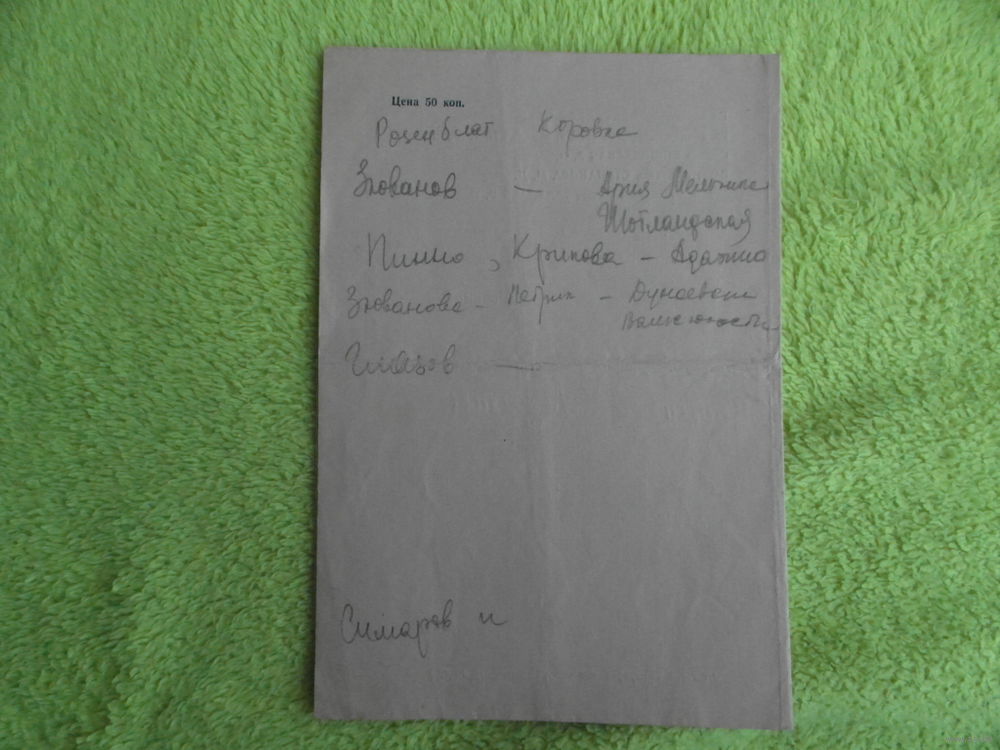 Цена 50 коп.
Розенблат Коровка
Зюванов — Ария Мельника
Шотландская
Пинно, Крипова — Адажио
Зюванова — Петрик — Дунаевский
Вальс юности
Глазов —
Симаров и